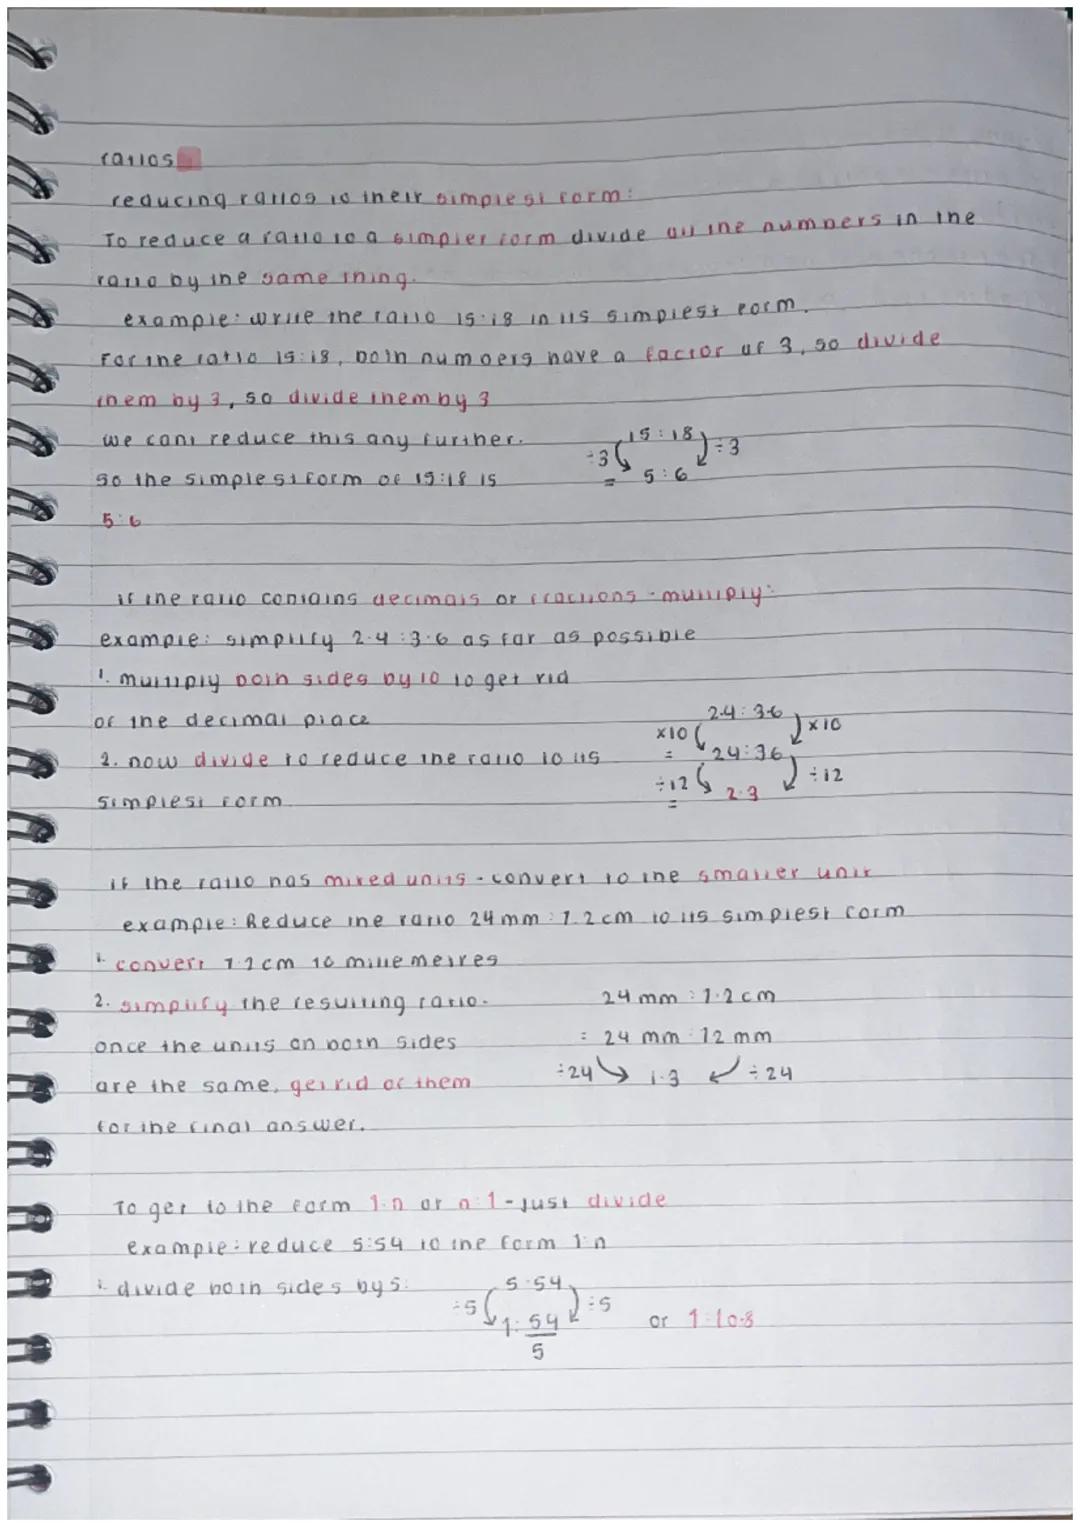 ratios
reducing ratios to their simplest form:
To reduce a ratio to a simpler form divide all the numbers in the
ratio by the same thing.
example: write the ratio 15:18 in its simplest form.
For the ratio 15:18, both numbers have a factor of 3, so divide
them by 3, so divide them by 3
we cant reduce this any further.
15:18
÷3 ÷3
so the simplest form of 15:18 is
= 5:6
5:6
if the ratio contains decimals or fractions - multiply:
example: simplify 2.4:3.6 as far as possible
1. multiply both sides by 10 to get rid
of the decimal place
2.4:3.6
×10 ×10
2. now divide to reduce the ratio to its
= 24:36
simplest form
÷12 ÷12
= 2:3
if the ratio has mixed units - convert to the smaller unit
example: Reduce the ratio 24mm:7.2cm to its simplest form
1. convert 7.2cm to millemetres
2. simplify the resulting ratio.
24mm:7.2cm
once the units on both sides
= 24 mm:72mm
are the same, get rid of them
÷24 1:3 ÷24
for the final answer.
To get to the form 1:n or n:1 - just divide
example: reduce 5:54 to the form 1:n
1. divide both sides by 5:
5:54
÷5 ÷5
1:54/5 or 1:10.8